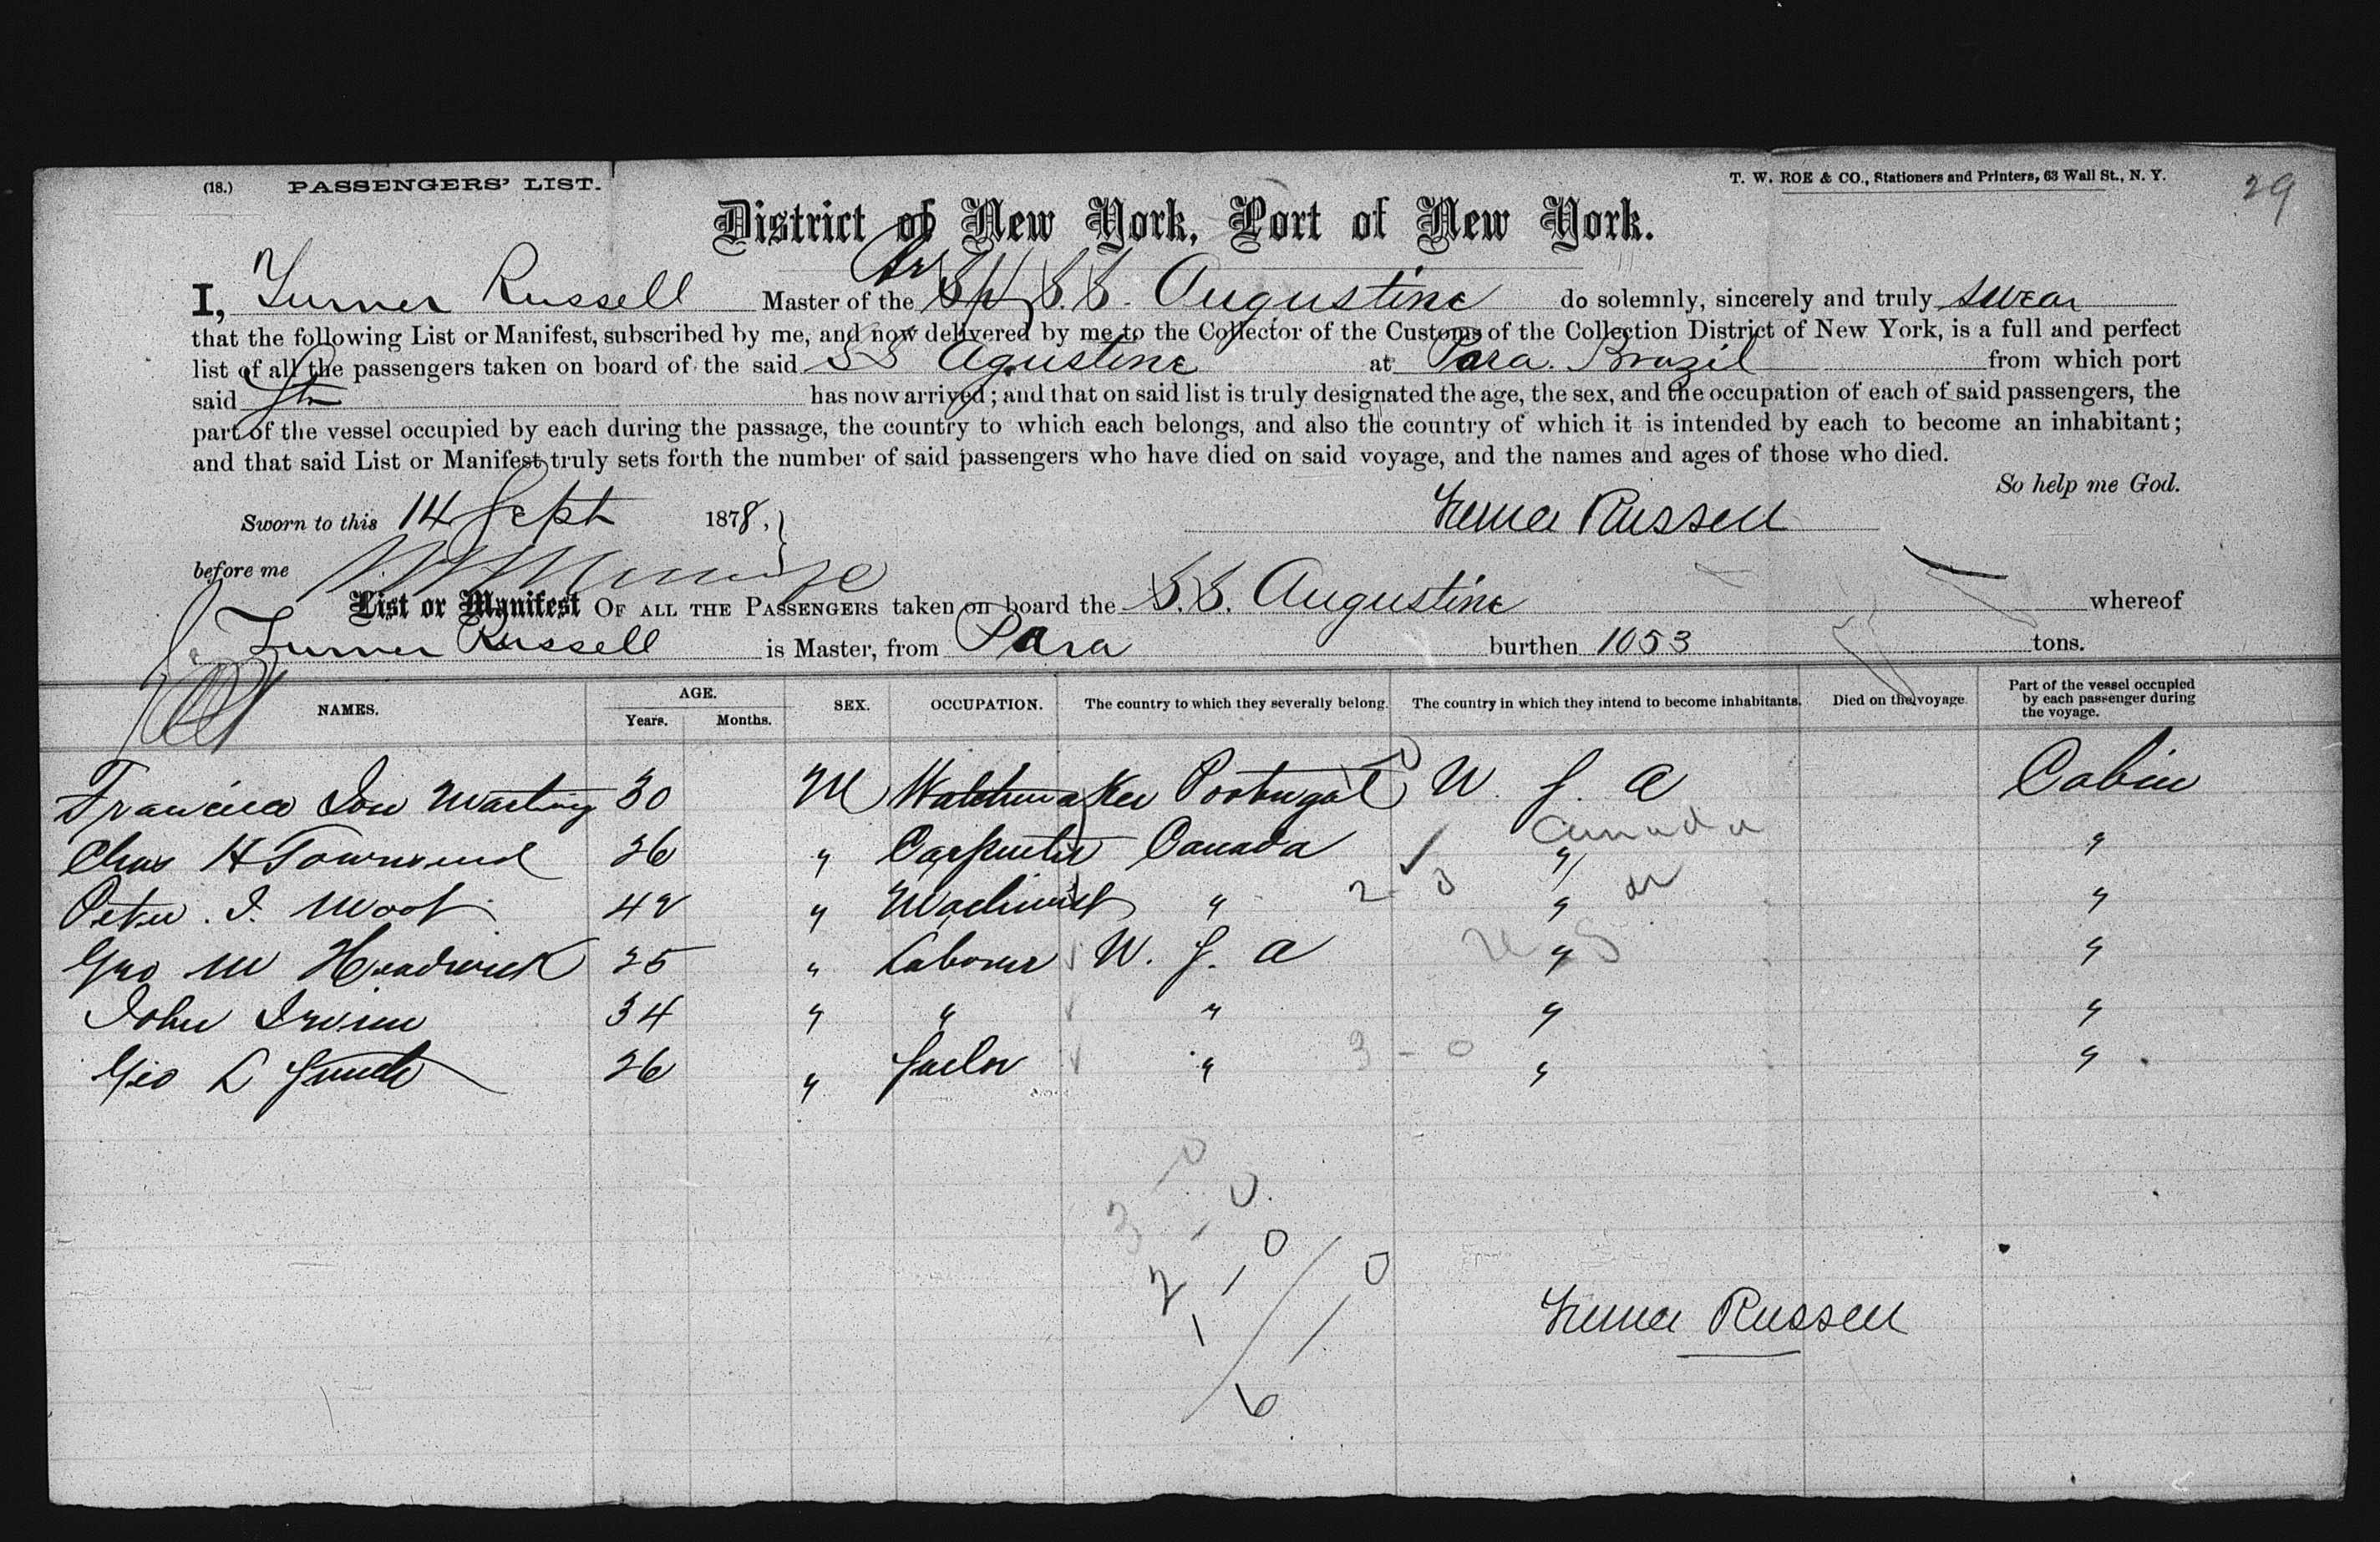 (18.) PASSENGERS' LIST. T. W. ROE & CO., Stationers and Printers, 63 Wall St., N. Y. 29
District of New York, Port of New York.
I, Turner Russell Master of the Br S.S. Augustine do solemnly, sincerely and truly swear
that the following List or Manifest, subscribed by me, and now delivered by me to the Collector of the Customs of the Collection District of New York, is a full and perfect
list of all the passengers taken on board of the said SS Agustine at Para. Brazil from which port
said Str has now arrived; and that on said list is truly designated the age, the sex, and the occupation of each of said passengers, the
part of the vessel occupied by each during the passage, the country to which each belongs, and also the country of which it is intended by each to become an inhabitant;
and that said List or Manifest truly sets forth the number of said passengers who have died on said voyage, and the names and ages of those who died.
So help me God.
Sworn to this 14 Sept 1878, Turner Russell
before me
List or Manifest OF ALL THE PASSENGERS taken on board the S.S. Augustine whereof
Turner Russell is Master, from Para burthen 1053 tons.
NAMES. AGE. Years. Months. SEX. OCCUPATION. The country to which they severally belong. The country in which they intend to become inhabitants. Died on the voyage Part of the vessel occupied by each passenger during the voyage.
30 M Watchmaker Portugal U. S. A Cabin
Chas H Townsend 26 " Carpenter Canada " Canada "
Peter . I. 42 " Machinist " 2 - 3 " "
Geo W Headwick 25 " Labourer U. S. A " U S "
John Irvine 34 " " " " "
Geo L Smith 26 " Sailor " 3 - 0 " "
0
3 - 0
2 - 0
1 / 0
6
Turner Russell